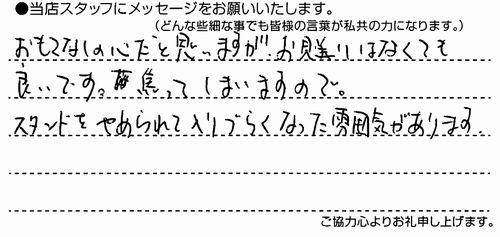 ●当店スタッフにメッセージをお願いいたします。
（どんな些細な事でも皆様の言葉が私共の力になります。）
おもてなしの心だと思いますが、お見送りはなくても
良いです。焦ってしまいますので。
スタンドをやめられて入りづらくなった雰囲気があります
ご協力心よりお礼申し上げます。